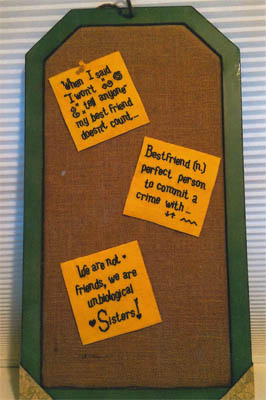 When I said
"I won't
tell anyone"
my best friend
doesn't count...
Bestfriend (n.)
perfect person
to commit a
crime with...
We are not
friends, we are
unbiological
Sisters!